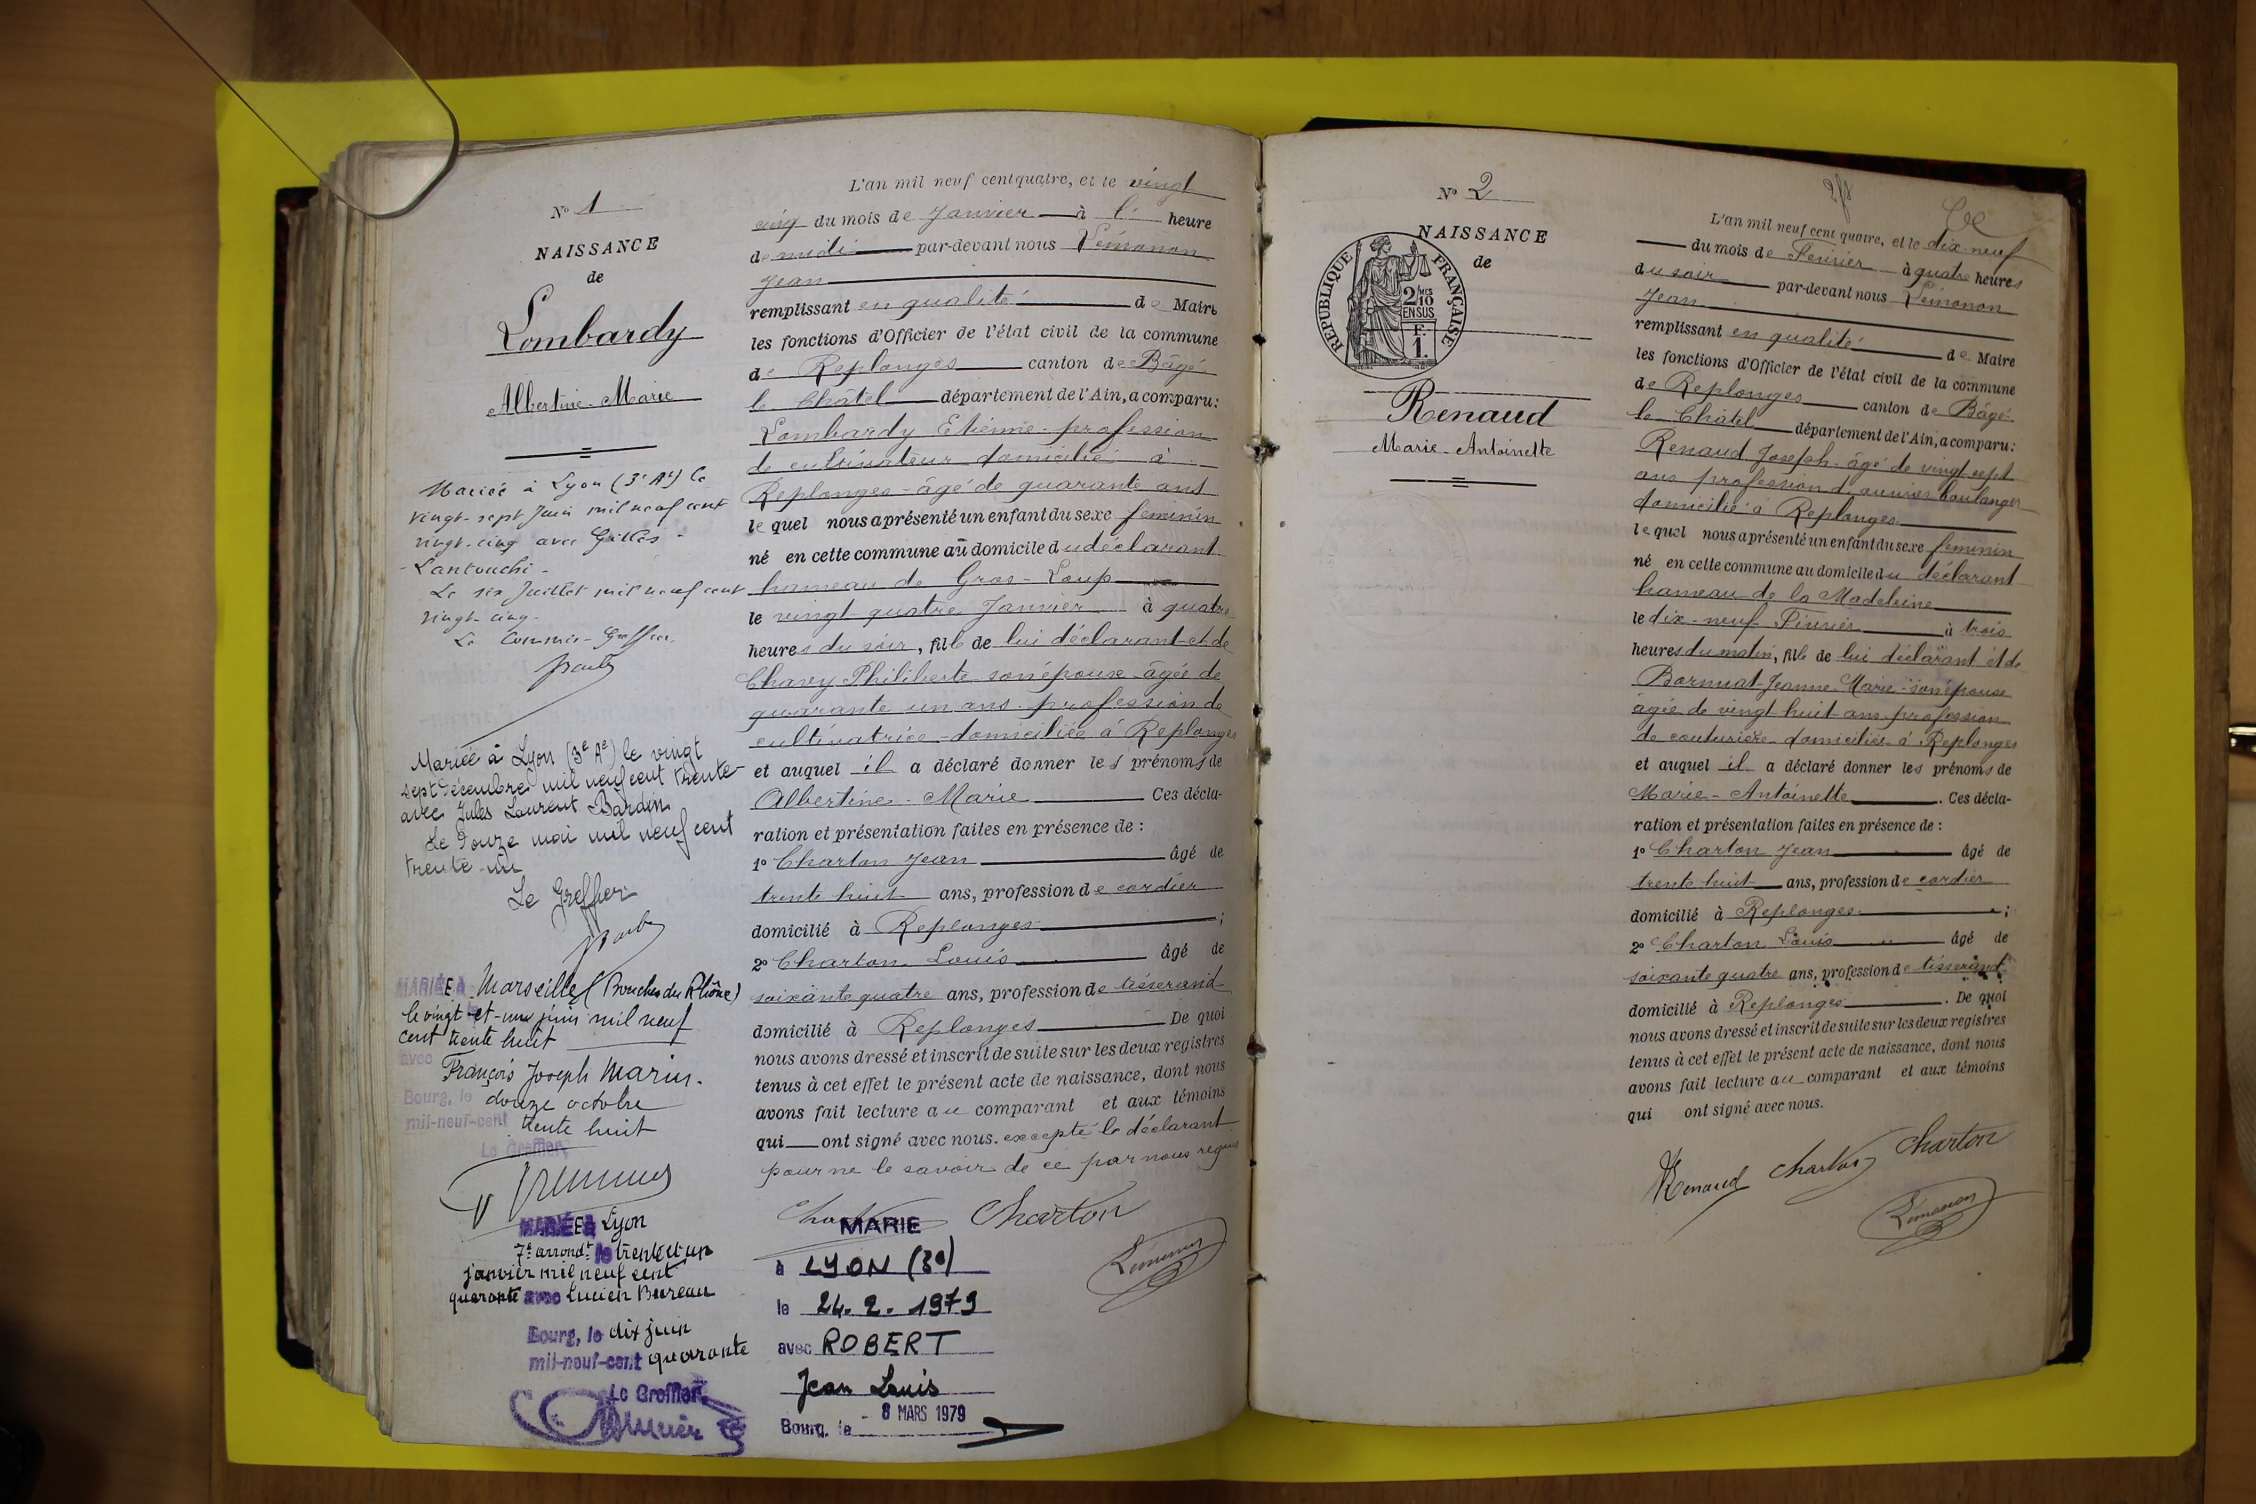 N° 1
NAISSANCE
de
Lombardy
Albertine-Marie
Mariée à Lyon (3e Ar) le
vingt-sept Juin mil neuf cent
vingt-cinq avec Gilles
Lantouchi-
Le six Juillet mil neuf cent
vingt-cinq.
Le Commis-Greffier
Mariée à Lyon (3e Ar) le vingt
sept Décembre mil neuf cent trente
avec Jules Laurent Bardin
Le Douze mai mil neuf cent
trente-un
Le Greffier
MARIÉE À Marseille (Bouches du Rhône)
le vingt-et-un juin mil neuf
cent trente huit
avec
François Joseph Marin.
Bourg, le douze octobre
mil-neuf-cent trente huit
Le Greffier,
MARIÉE À Lyon
7e arrondt le trente et un
janvier mil neuf cent
quarante avec Lucien Bureau
Bourg, le dix juin
mil-neuf-cent quarante
Le Greffier,
L'an mil neuf cent quatre, et le vingt
cinq du mois de Janvier à l' heure
de midi par-devant nous Lémonon
Jean
remplissant en qualité de Maire
les fonctions d'Officier de l'état civil de la commune
de Replonges canton de Bâgé
le Chatel département de l'Ain, a comparu:
Lombardy Etienne profession
de cultivateur domicilié à
Replonges-âgé de quarante ans
le quel nous a présenté un enfant du sexe feminin
né en cette commune au domicile du déclarant
hameau de Gros-Loup
le vingt-quatre Janvier à quatre
heures du soir, fille de lui déclarant et de
Chavy Philiberte son épouse âgée de
quarante un ans profession de
cultivatrice-domiciliée à Replonges
et auquel il a déclaré donner les prénoms de
Albertine-Marie Ces décla-
ration et présentation faites en présence de :
1° Charton Jean âgé de
trente huit ans, profession de cordier
domicilié à Replonges ;
2° Charton Louis âgé de
soixante quatre ans, profession de tisserand
domicilié à Replonges De quoi
nous avons dressé et inscrit de suite sur les deux registres
tenus à cet effet le présent acte de naissance, dont nous
avons fait lecture au comparant et aux témoins
qui ont signé avec nous. excepté le déclarant
pour ne le savoir de ce par nous requis
Charton
Lémonon
MARIE
à LYON (3e)
le 24.2.1979
avec ROBERT
Jean Louis
Bourg, le 8 MARS 1979
N° 2
NAISSANCE
de
REPUBLIQUE FRANÇAISE
2/10 MES
EN SUS
F.
1.
Renaud
Marie-Antoinette
L'an mil neuf cent quatre, et le dix-neuf
du mois de Fevrier à quatre heures
du soir par-devant nous Lémonon
Jean
remplissant en qualité de Maire
les fonctions d'Officier de l'état civil de la commune
de Replonges canton de Bâgé
le Châtel département de l'Ain, a comparu:
Renaud Joseph-âgé de vingt sept
ans profession d'ouvrier boulanger
domicilié à Replonges
le quel nous a présenté un enfant du sexe feminin
né en cette commune au domicile du déclarant
hameau de la Madeleine
le dix-neuf Fevrier à trois
heures du matin, fille de lui déclarant et de
Bornuat Jeanne Marie son épouse
âgée de vingt huit ans profession
de couturière domiciliée à Replonges
et auquel il a déclaré donner les prénoms de
Marie-Antoinette. Ces décla-
ration et présentation faites en présence de :
1° Charton Jean âgé de
trente huit ans, profession de cordier
domicilié à Replonges ;
2° Charton Louis âgé de
soixante quatre ans, profession de tisserand
domicilié à Replonges. De quoi
nous avons dressé et inscrit de suite sur les deux registres
tenus à cet effet le présent acte de naissance, dont nous
avons fait lecture au comparant et aux témoins
qui ont signé avec nous.
Renaud Charton Charton
Lémonon